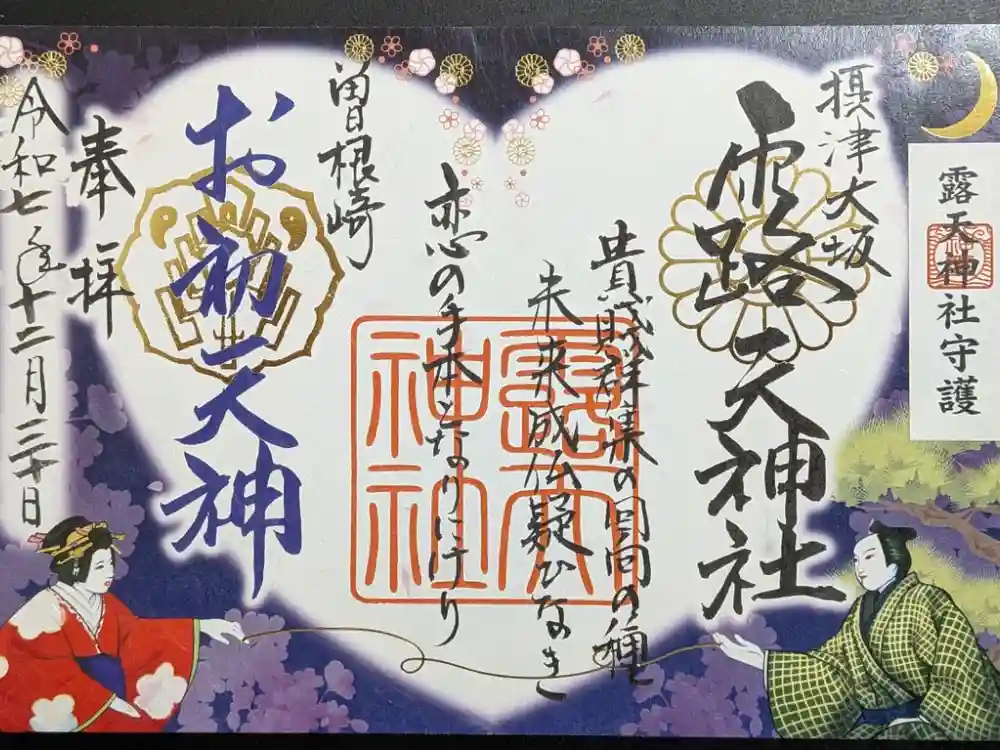 露天神社守護
摂津大坂
露天神社
貴賎群集の回向の種
未来成仏疑ひなき
恋の手本となりにけり
露天
神社
曽根崎
お初天神
奉拝
令和七年十二月三十日